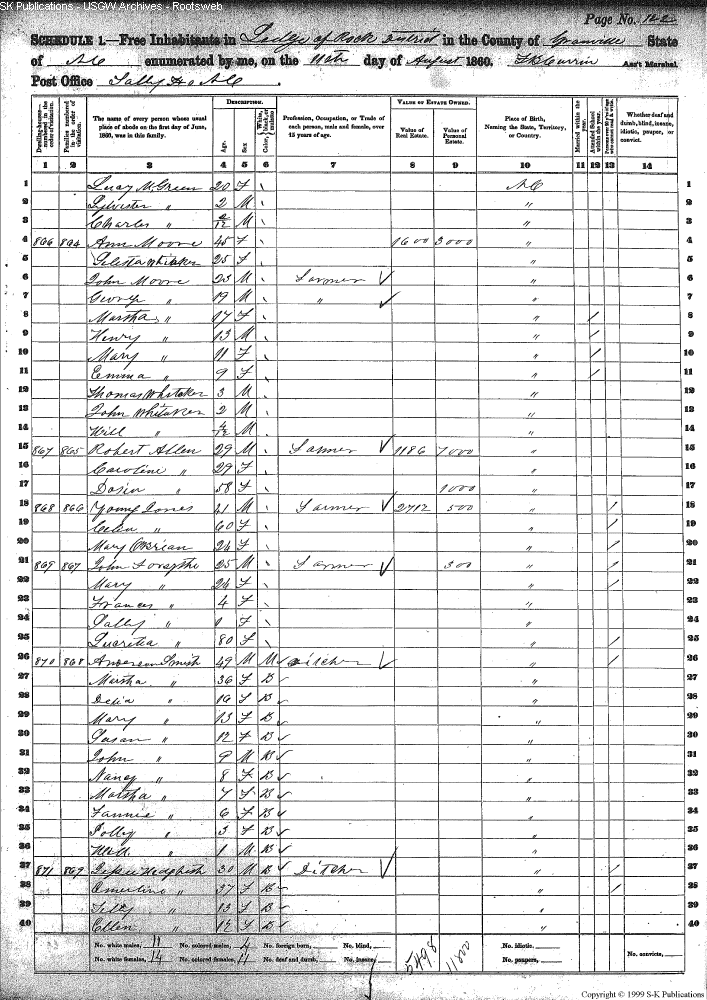 SK Publications - USGW Archives - Rootsweb
Page No. 122
SCHEDULE 1.—Free Inhabitants in Ledge of Rock District in the County of Granville State
of NC enumerated by me, on the 11th day of August 1860. Ass't Marshal.
Post Office Sally
DESCRIPTION. VALUE OF ESTATE OWNED.
Dwelling-houses—numbered in the order of visitation. Families numbered in the order of visitation. The name of every person whose usual place of abode on the first day of June, 1860, was in this family. Age. Sex. Color, White, black, or mulatto. Profession, Occupation, or Trade of each person, male and female, over 15 years of age. Value of Real Estate. Value of Personal Estate. Place of Birth, Naming the State, Territory, or Country. Married within the year. Attended School within the year. Persons over 20 y'rs of age who cannot read & write. Whether deaf and dumb, blind, insane, idiotic, pauper, or convict.
1 2 3 4 5 6 7 8 9 10 11 12 13 14
1 Lucy McGreen 20 F \ NC 1
2 Sylvester " 2 M \ " 2
3 Charles " /12 M \ " 3
4 866 864 Ann Moore 45 F \ 1600 3000 " 4
5 Whitaker 25 F \ " 5
6 John Moore 23 M \ Farmer ✓ " 6
7 George " 19 M \ " ✓ " 7
8 Martha " 17 F \ " / 8
9 Henry " 13 M \ " / 9
10 Mary " 11 F \ " / 10
11 Emma " 9 F \ " / 11
12 Thomas Whitaker 3 M " 12
13 John Whitaker 2 M \ " 13
14 Will " /12 M \ " 14
15 867 865 Robert Allen 29 M \ Farmer ✓ 1186 7000 " 15
16 Caroline " 29 F \ " 16
17 " 58 F \ 1000 " 17
18 868 866 Young Jones 41 M \ Farmer ✓ 2712 500 " / 18
19 " 60 F \ " / 19
20 Mary 26 F \ " / 20
21 869 867 John Forsythe 25 M \ Farmer ✓ 300 " / 21
22 Mary " 26 F \ " / 22
23 Frances " 4 F \ " 23
24 Sally " F \ " 24
25 Lucretia " 80 F \ " / 25
26 870 868 Anderson Smith 49 M M ✓ Ditcher ✓ " / 26
27 Martha " 36 F B ✓ " 27
28 Delia " 16 F B ✓ " 28
29 Mary " 13 F B ✓ " 29
30 Susan " 12 F B ✓ " 30
31 John " 9 M B ✓ " 31
32 Nancy " 8 F B ✓ " 32
33 Martha " 7 F B ✓ " 33
34 Fannie " 6 F B ✓ " 34
35 Polly " 3 F B ✓ " 35
36 Will " 1 M B ✓ " 36
37 871 869 30 M B ✓ Ditcher ✓ " / 37
38 Emerline " 37 F B ✓ " / 38
39 " 13 F B ✓ " 39
40 Ellen " 12 F B ✓ " 40
No. white males, 11 No. colored males, 4 No. foreign born, No. blind, No. idiotic,
No. white females, 14 No. colored females, 11 No. deaf and dumb, No. insane, 5498 11800 No. paupers, No. convicts,
Copyright © 1999 S-K Publications